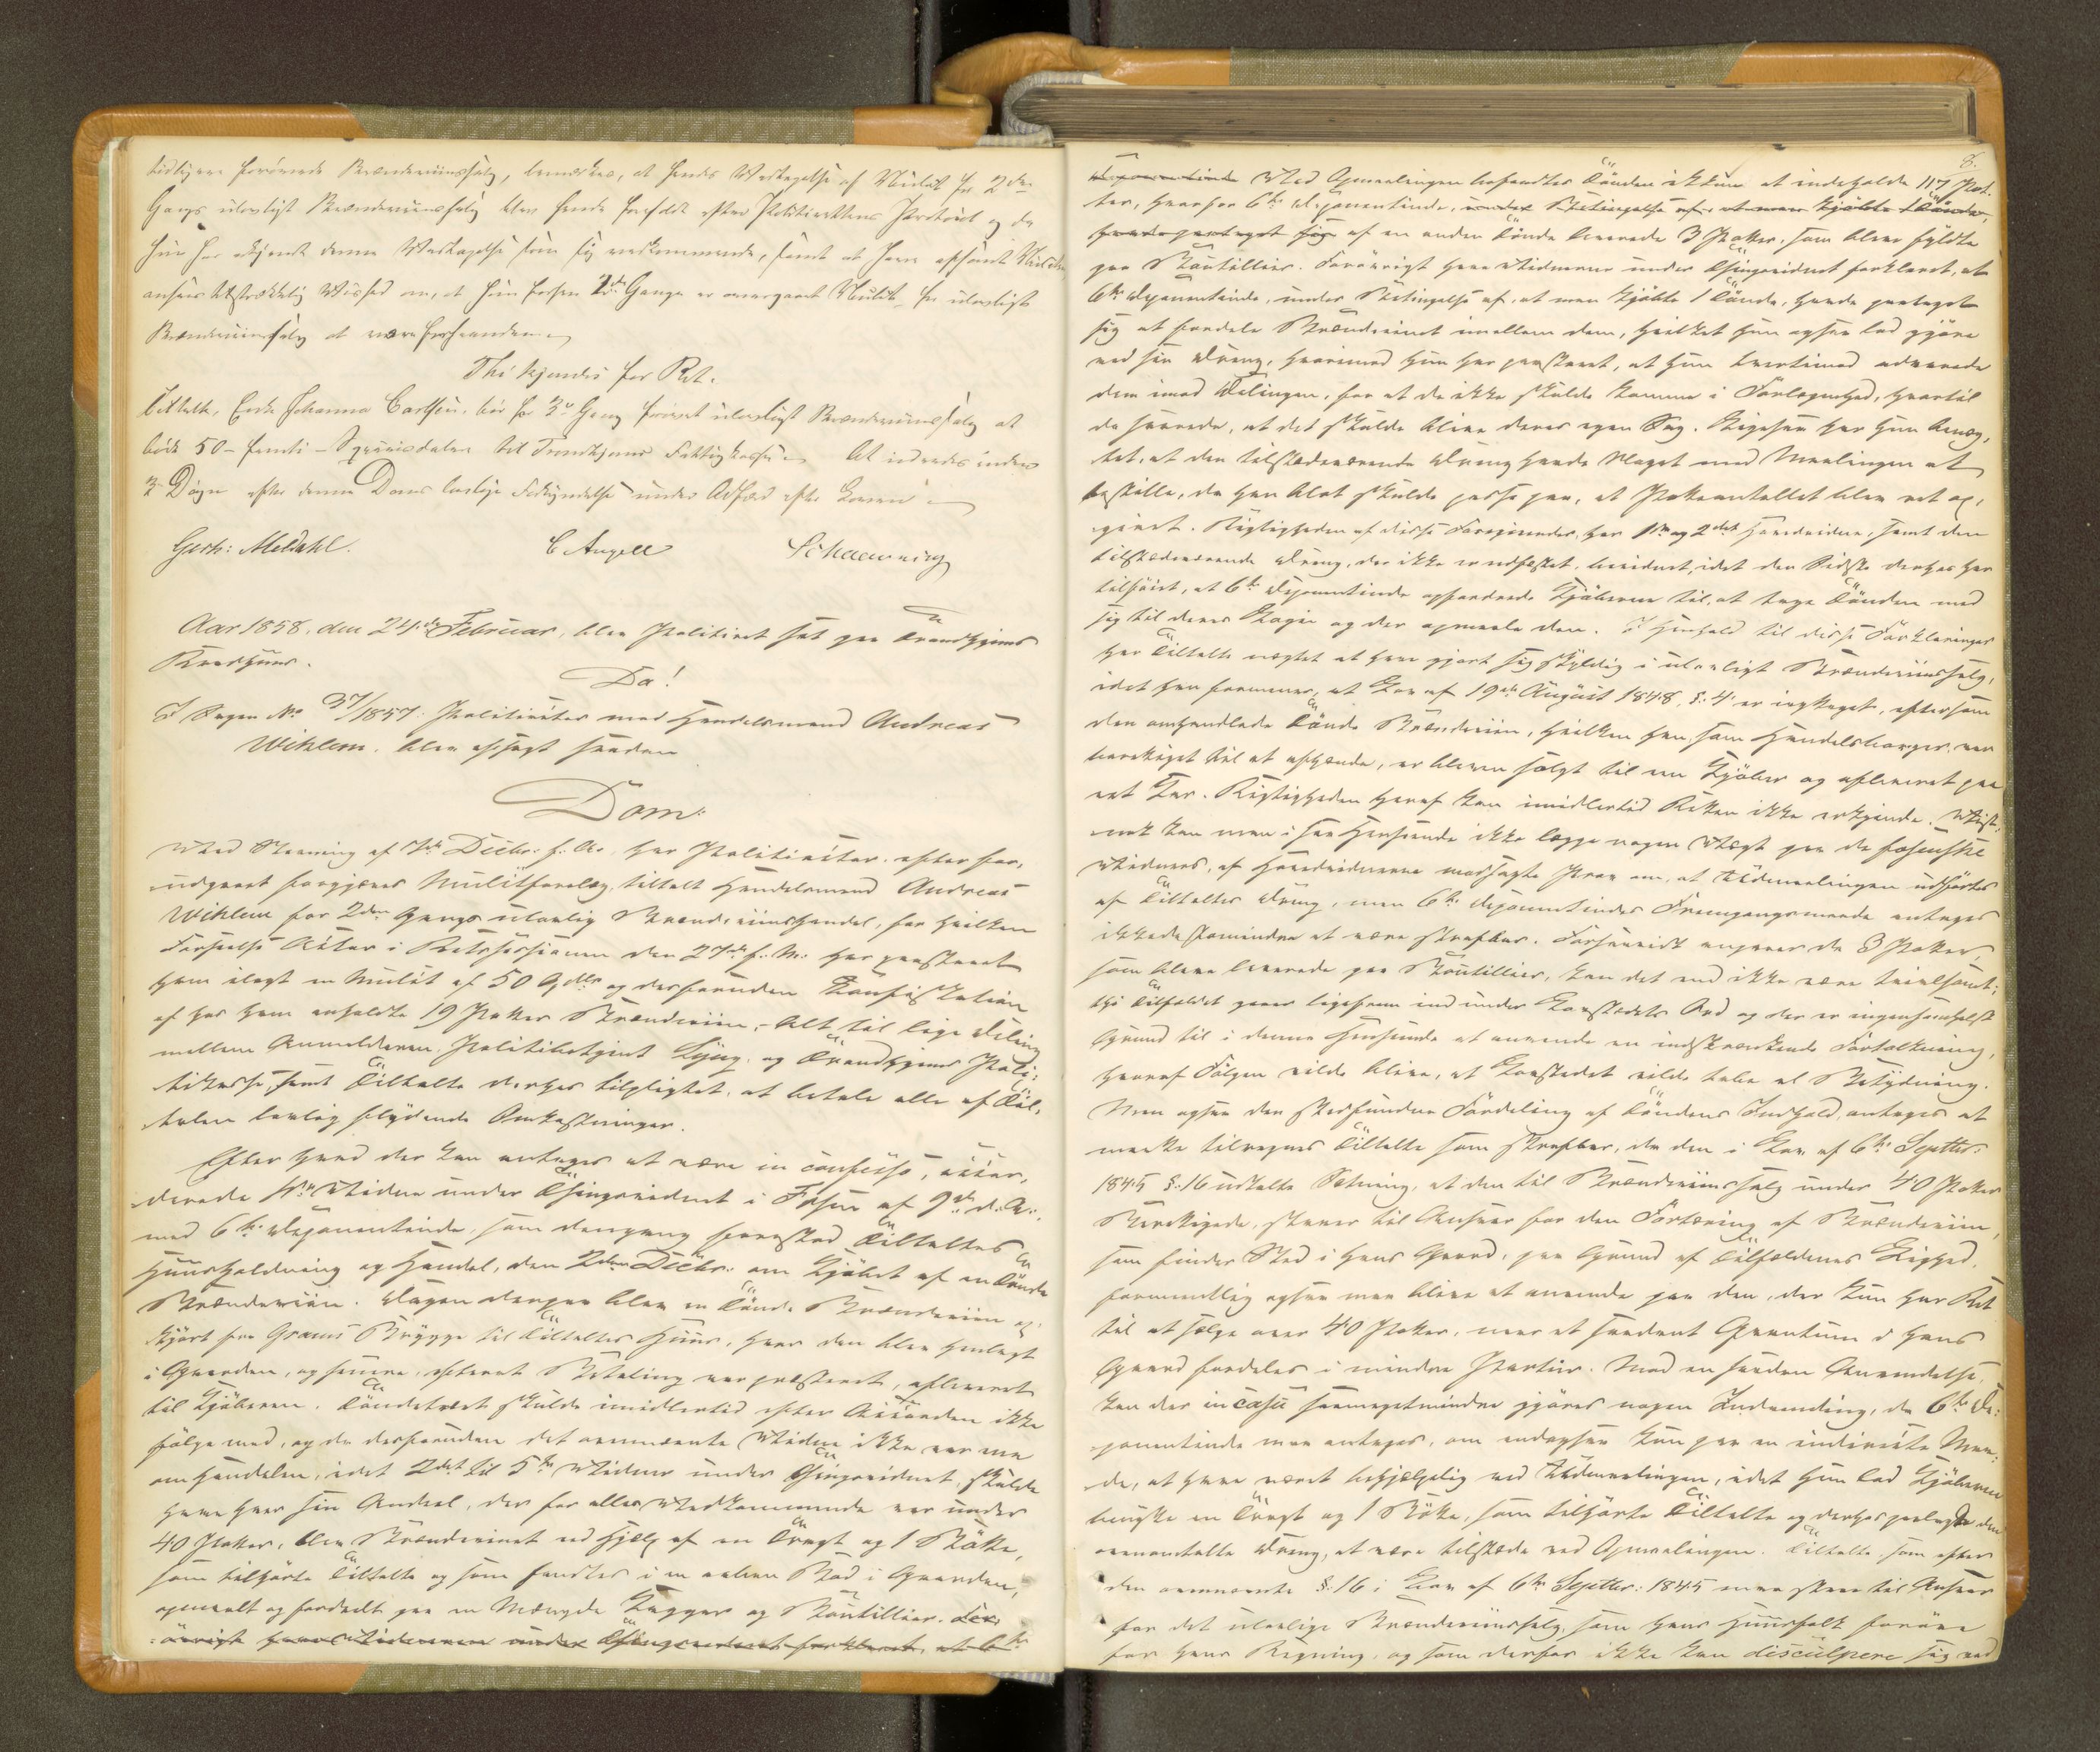 tidligere forøvede Brændeviinssalg, bemærkes, at hendes Vedtagelse af Mulct for 2den
Gangs ulovligt Brændeviinssalg blev hende foreholdt efter Politirettens Protocol og da
hun har erkjendt denne Vedtagelse som sig vedkommende, samt at have afsonet Mulcten
ansees tilstrækkelig Vished om, at hun forhen 2de Gange er overgaaet Mulct for ulovligt
Brændeviinssalg at være forhaanden.
Thi kjendes for Ret:
Tiltalte, Enke Johanna Carlsen, bør for 3die Gang prøvet ulovligt Brændeviinssalg at
bøde 50 - femti - Speciedaler til Trondhjems Fattigkasse. At udredes inden
3 Døgn efter denne Doms lovlige Forkyndelse under Adfærd efter Loven.
Gerh: Meldahl. C Angell Schaanning
Aar 1858, den 24de Februar, blev Politiret sat paa Trondhjems
Raadhuus.
Da!
I Sagen No 37/1857: Politiactor mod Handelsmand Andreas
Wiklem, blev afsagt saadan
Dom:
Ved Stævning af 7de Decbr: f. A. har Politiactor, efter for-
udgaaet forgjæves Mulctforelæg, tiltalt Handelsmand Andreas
Wiklem for 2den Gangs ulovlig Brændeviinshandel, for hvilken
Forseelse Actor i Retssessionen den 27de f. M. har paastaaet
ham ilagt en Mulct af 50 Spdlr og desforuden Confiskation
af hos ham anholdte 19 Potter Brændeviin, Alt til lige Deling
mellem Anmelderen, Politibetjent Lyng, og Trondhjems Poli-
tikasse, samt Tiltalte derhos tilpligtet, at betale alle af Til-
talen lovlig flydende Omkostninger.
Efter hvad der kan antages at være in confesso, accor-
derede 1ste Vidne under Thingsvidnet i Fosen af 9de d. A.,
med 6te Deponentinde, som dengang forestod Tiltaltes
Huusholdning og Handel, den 2den Decbr: om Kjøbet af en Tønde
Brændeviin. Dagen derpaa blev en Tønde Brændeviin og-
kjørt fra Grams Brygge til Tiltaltes Huus, hvor den blev henlagt
i Gaarden, og senere, efterat Betaling var præsteret, afleveret
til Kjøberen. Tøndetræet skulde imidlertid efter Accorden ikke
følge med, og da desforuden det ommeldte Vidne ikke var ene
om Handelen, idet 2det til 5te Vidner under Thingsvidnet, skulde
have hver sin Andeel, der for alle Vedkommende var under
40 Potter, blev Brændevinet ved Hjælp af en Tragt og 1 Bøtte,
som tilhørte Tiltalte og som fandtes i en aaben Bod i Gaarden,
opmaalt og fordeelt paa en Mængde Kagger og Bouteillier. For-
øvrigt have Vidnerne under Thingsvidnet forklaret, at 6te
8.
Deponentinde Ved Opmaalingen befandtes Tønden ikkun at indeholde 117 Pot-
ter, hvorfor 6te Deponentinde, under Betingelse af, at man kjøbte 1 Tønde,
havde paataget sig af en anden Tønde leverede 3 Potter, som bleve fyldte
paa Bouteillier. Forøvrigt have Vidnerne under Thingsvidnet forklaret, at
6te Deponentinde, under Betingelse af, at man kjøbte 1 Tønde, havde paataget
sig at fordele Brændevinet imellem dem, hvilket hun ogsaa lod gjøre
ved sin Dreng, hvorimod hun har paastaaet, at hun tvertimod advarede
dem imod Delingen, for at de ikke skulde komme i Forlegenhed, hvortil
de svarede, at det skulde blive deres egen Sag. Ligesaa har hun benæg-
tet, at den tilstedeværende Dreng havde Noget med Maalingen at
bestille, da han blot skulde passe paa, at Potteantallet blev ret op-
givet. Rigtigheden af disse Foregivender har 1ste og 2det Hovedvidne, samt den
tilstedeværende Dreng, der ikke er edfæstet, bevidnet, idet den Sidste derhos har
tilføiet, at 6te Deponentinde opfordrede Kjøberne til, at tage Tønden med
sig til deres Logie og der opmaale den. I Henhold til disse Forklaringer
har Tiltalte nægtet at have gjort sig skyldig i ulovligt Brændeviinssalg,
idet han formener, at Lov af 19de August 1848, §. 4 er iagttaget, eftersom
den omhandlede Tønde Brændeviin, hvilken han, som Handelsborger, var
berettiget til at afhænde, er bleven solgt til een Kjøber og afleveret paa
eet Kar. Rigtigheden heraf kan imidlertid Retten ikke erkjende. Vist-
nok kan man i saa Henseende ikke lægge nogen Vægt paa de fosenske
Vidners, af Hovedvidnerne modsagte Prov om, at Udmaalingen udførtes
af Tiltaltes Dreng, men 6te Deponentindes Fremgangsmaade antages
ikkedestomindre at være strafbar. Forsaavidt angaaer de 3 Potter,
som bleve leverede paa Bouteillier, kan det end ikke være tvivlsomt;
thi Tilfældet gaaer ligefrem ind under Lovstedets Ord og der er ingensomhelst
Grund til i denne Henseende at anvende en indskrænkende Fortolkning,
hvoraf Følgen vilde blive, at Lovstedet vilde tabe al Betydning.
Men ogsaa den stedfundne Fordeling af Tøndens Indhold, antages at
maatte tilregnes Tiltalte som strafbar, da den i Lov af 6te Septbr:
1845 §. 16 udtalte Sætning, at den til Brændeviinssalg under 40 Potter
Berettigede, staaer til Ansvar for den Fortæring af Brændeviin,
som finder Sted i hans Gaard, paa Grund af Tilfældenes Lighed,
formeentlig ogsaa maa blive at anvende paa den, der kun har Ret
til at sælge over 40 Potter, naar et saadant Qvantum i hans
Gaard fordeles i mindre Partier. Mod en saadan Anvendelse,
kan der in casu saameget mindre gjøres nogen Indvending, da 6te De-
ponentinde maa antages, om endogsaa kun paa en indirecte Maa-
de, at have været behjælpelig ved Udmaalingen, idet hun lod Kjøberne
benytte en Tragt og 1 Bøtte, som tilhørte Tiltalte og derhos paalagde den
ovenomtalte Dreng, at være tilstede ved Opmaalingen. Tiltalte, som efter
den ovennævnte §. 16 i Lov af 6te Septbr: 1845 maa staae til Ansvar
for det ulovlige Brændeviinssalg, som hans Huusfolk forøve
for hans Regning, og som derfor ikke kan disculpere sig ved